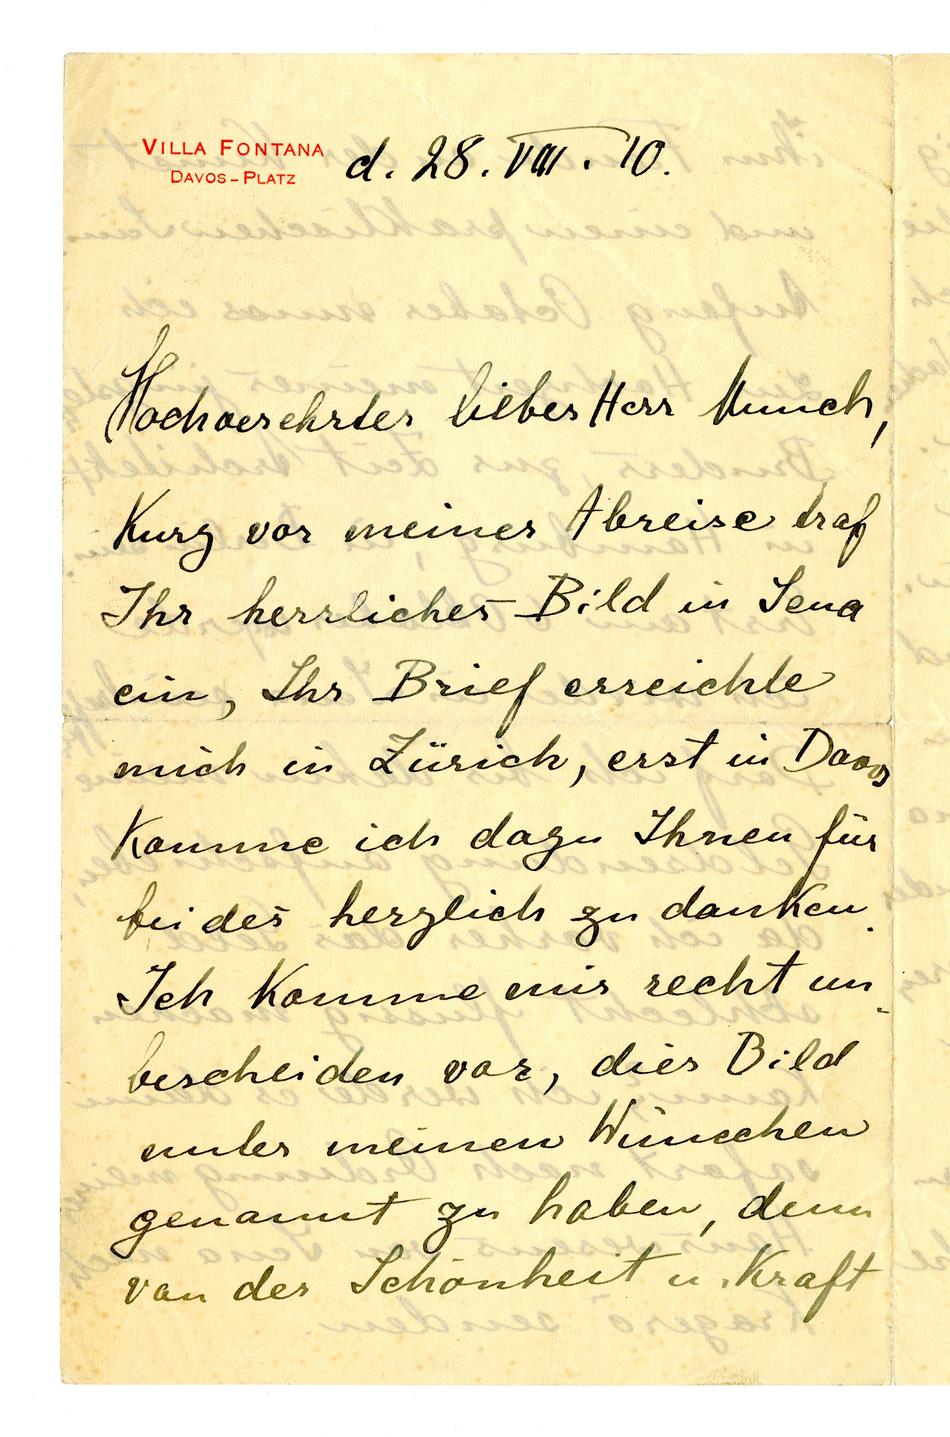 VILLA FONTANA
DAVOS-PLATZ
d. 28. VIII. 10.
Hochverehrter lieber Herr Munch,
Kurz vor meiner Abreise traf
Ihr herrliches Bild in Jena
ein, Ihr Brief erreichte
mich in Zürich, erst in Davos
komme ich dazu Ihnen für
beides herzlich zu danken.
Ich komme mir recht un-
bescheiden vor, dies Bild
unter meinen Wünschen
genannt zu haben, denn
von der Schönheit u. Kraft